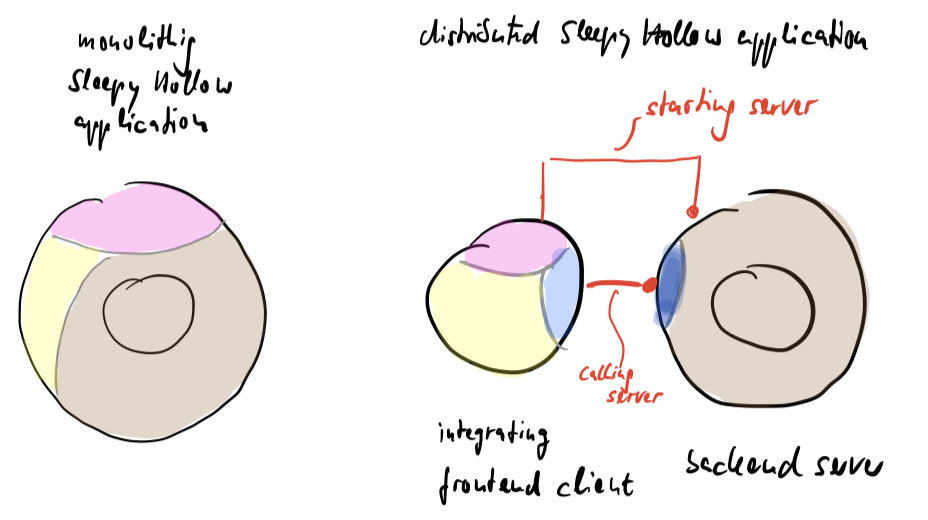 monolithip
Sleepy Hollow
application
distributed Sleepy Hollow application
starting server
calling
server
integrating
frontend client
backend server